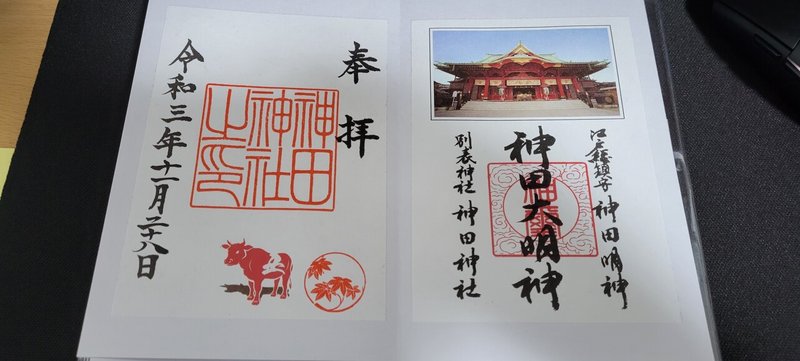 奉拝
神田
神社
之印
令和三年十一月二十八日
江戸総鎮守 神田明神
神田大明神
別表神社 神田神社